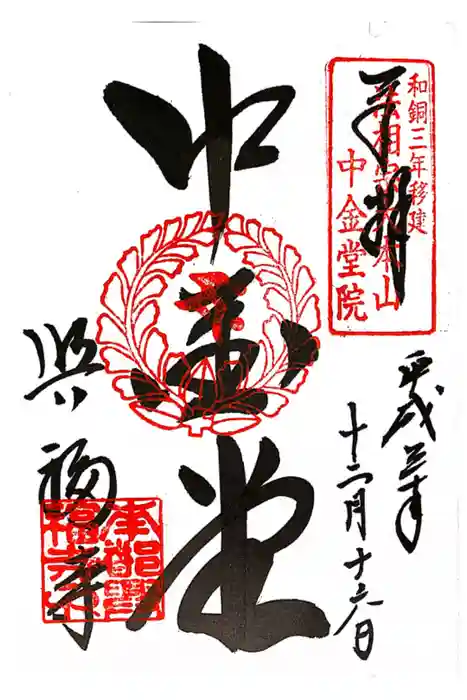 奉拝
和銅三年移建
法相宗大本山
中金堂院
平成三十年
十二月十六日
中金堂
興福寺